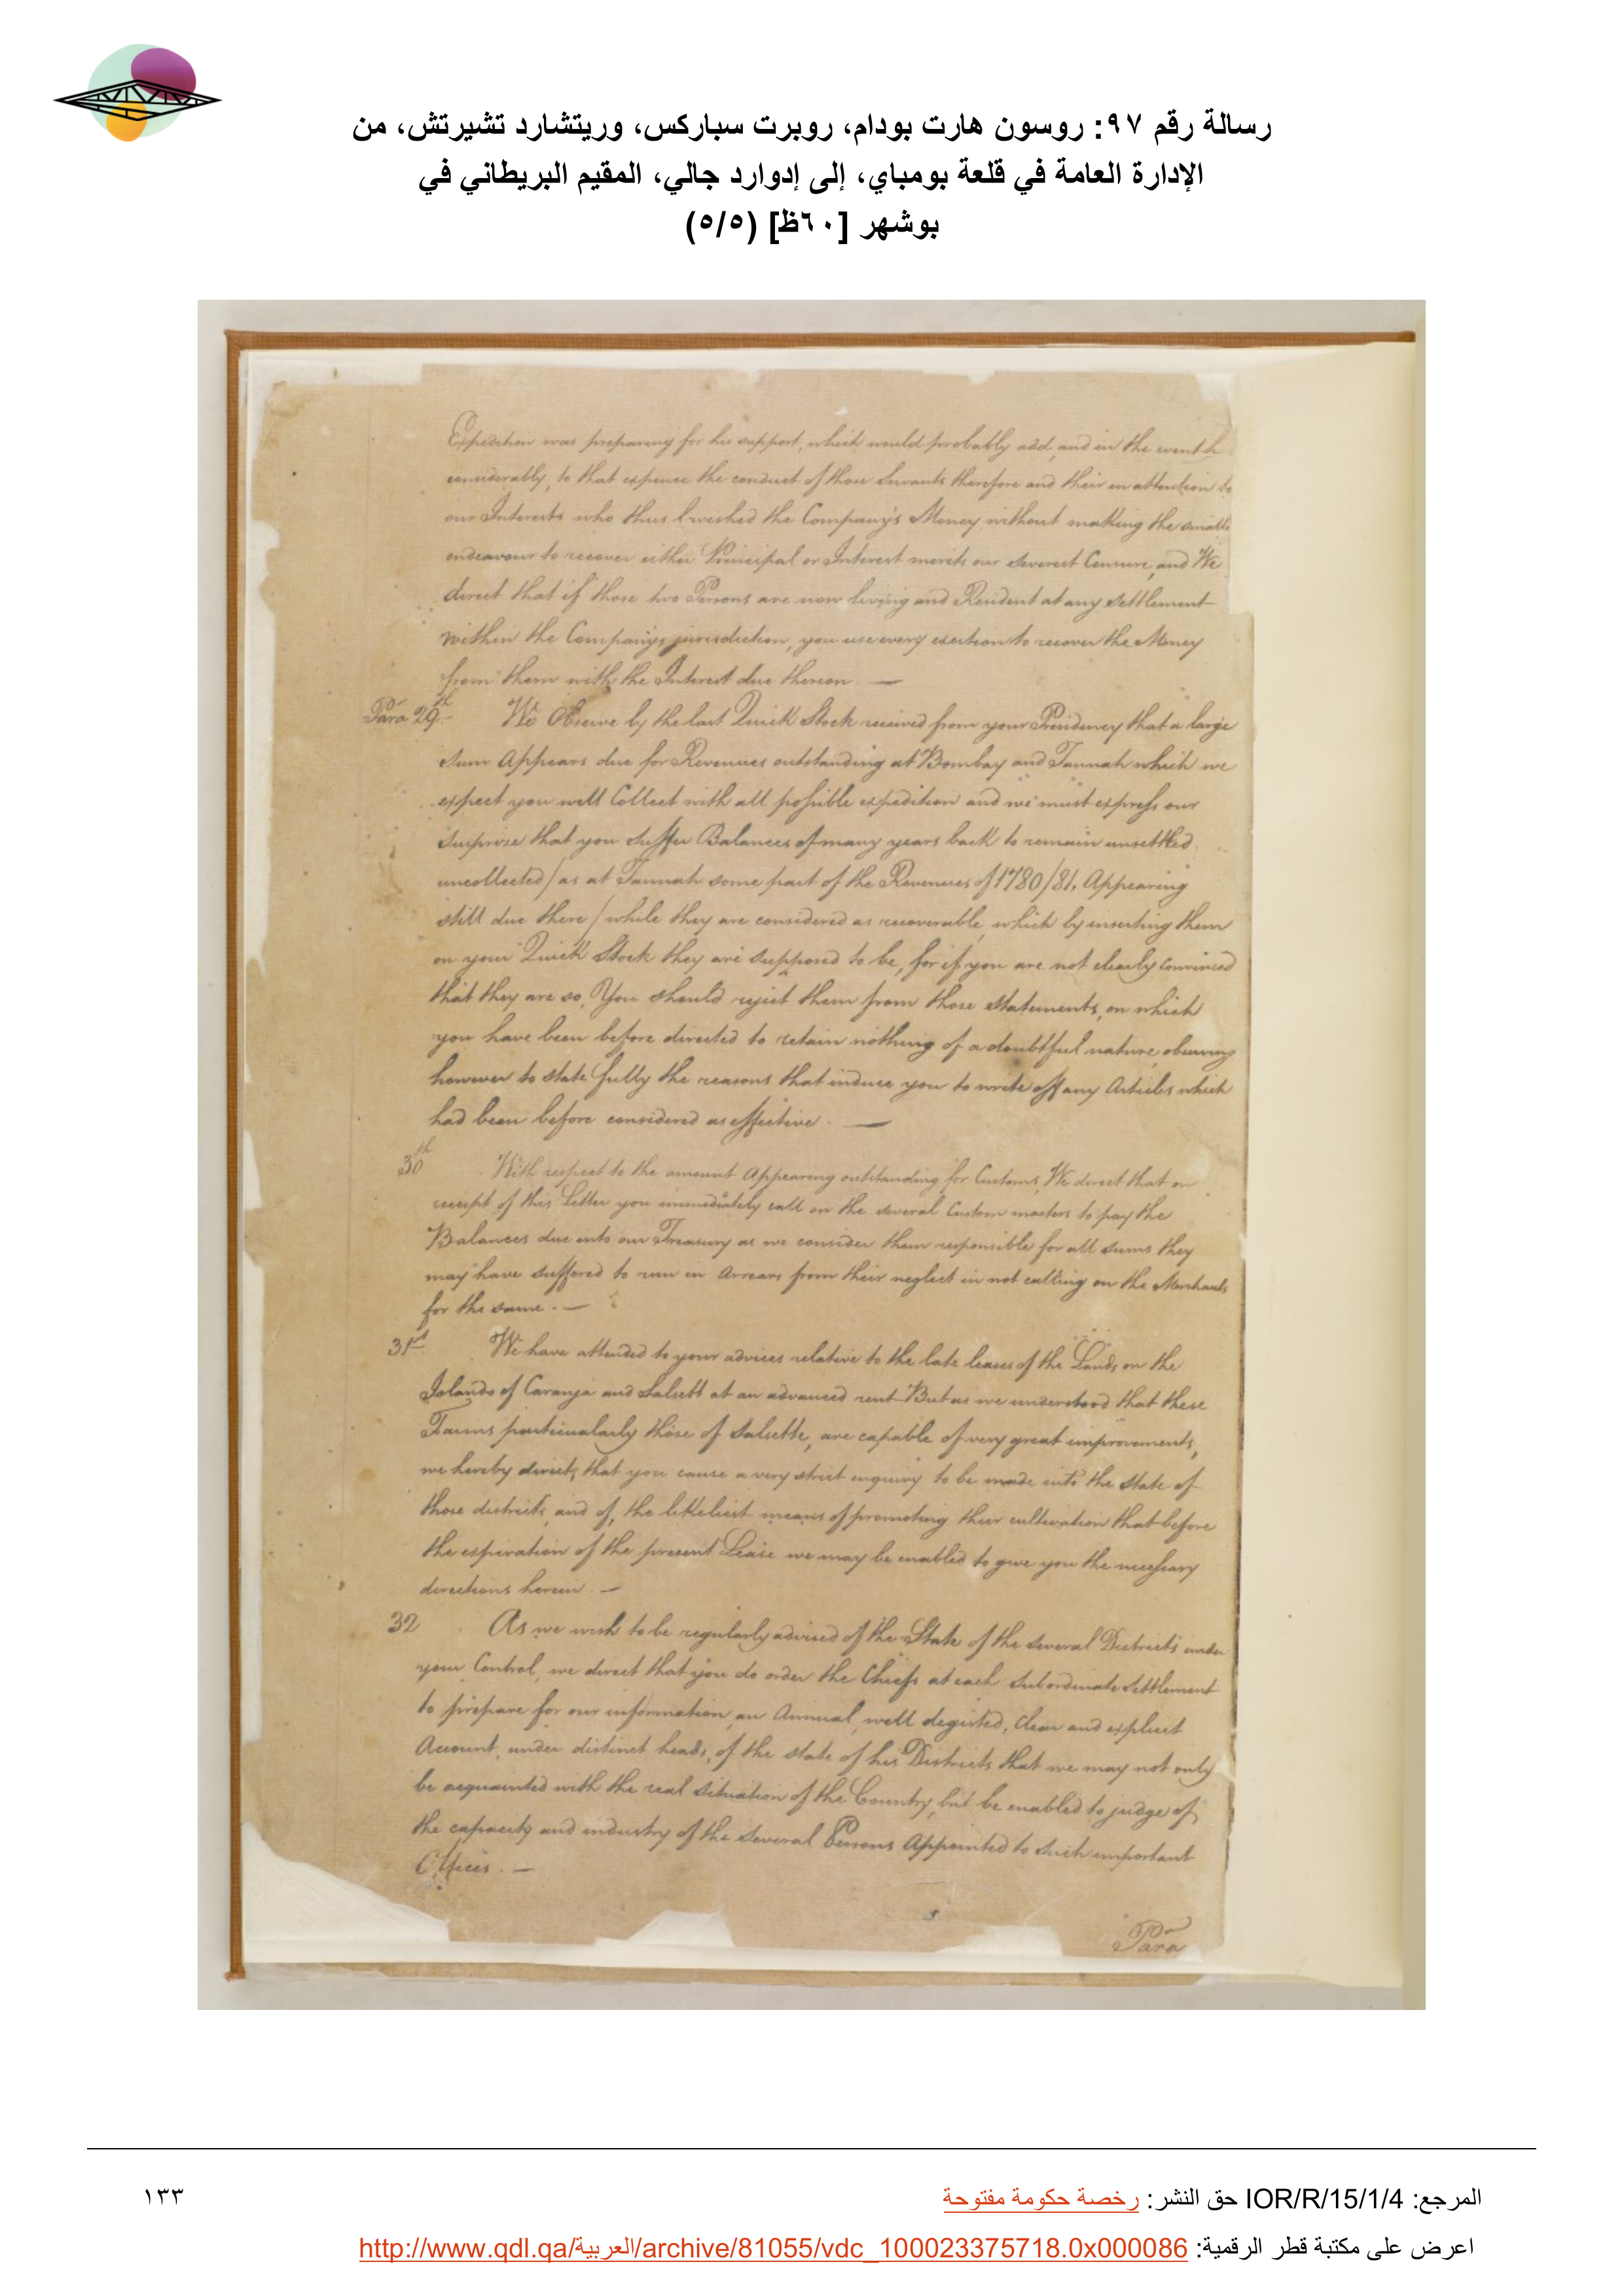 رسالة رقم ٩٧: روسون هارت بودام، روبرت سباركس، وريتشارد تشيرتش، من
الإدارة العامة في قلعة بومباي، إلى إدوارد جالي، المقيم البريطاني في
بوشهر [٦٠ظ] (٥/٥)
Expedition was preparing for his support, which would probably add, and in the event h
considerably, to that expence the conduct of those Servants therefore and their inattention to
our Interests who thus lavished the Company's Money without making the smalle
endeavour to recover either Principal or Interest merits our severest Censure, and We
direct that if those two Persons are now living and Resident at any Settlement
within the Companys jurisdiction, you use every exertion to recover the Money
from them with the Interest due thereon —
Para 29th We Observe by the last Quick Stock received from your Presidency that a large
Sum Appears due for Revenues outstanding at Bombay and Tannah which we
expect you will Collect with all possible expedition and we must express our
Surprise that you suffer Balances of many years back to remain unsettled
uncollected / as at Tannah some part of the Revenues of 1780/81, Appearing
still due there / while they are considered as recoverable, which by inserting them
on your Quick Stock they are supposed to be, for if you are not clearly convinced
that they are so, You should reject them from those statements, on which
you have been before directed to retain nothing of a doubtful nature, observing
however to state fully the reasons that induce you to write off any Articles which
had been before considered as effective. —
30th With respect to the amount Appearing outstanding for Customs, We direct that on
receipt of this Letter you immediately call on the several Custom masters to pay the
Balances due into our Treasury as we consider them responsible for all sums they
may have suffered to run in Arrears from their neglect in not calling on the Merchants
for the same. —
31st We have attended to your advices relative to the late leases of the Lands on the
Islands of Caranja and Salsett at an advanced rent But as we understood that these
Farms particularly those of Salsette, are capable of very great improvements,
we hereby direct, that you cause a very strict enquiry to be made into the state of
those districts, and of, the likeliest means of promoting their cultivation that before
the expiration of the present Lease we may be enabled to give you the necessary
directions herein. —
32 As we wish to be regularly advised of the State of the several Districts under
your Control, we direct that you do order the Chiefs at each Subordinate Settlement
to prepare for our information, an Annual, well degisted, Clear and explicit
Account, under distinct heads, of the state of his Districts that we may not only
be acquainted with the real Situation of the Country, but be enabled to judge of
the capacity and industry of the several Persons Appointed to such important
Offices. —
Para
المرجع: IOR/R/15/1/4 حق النشر: رخصة حكومة مفتوحة
١٣٣
اعرض على مكتبة قطر الرقمية: http://www.qdl.qa/العربية/archive/81055/vdc_100023375718.0x000086